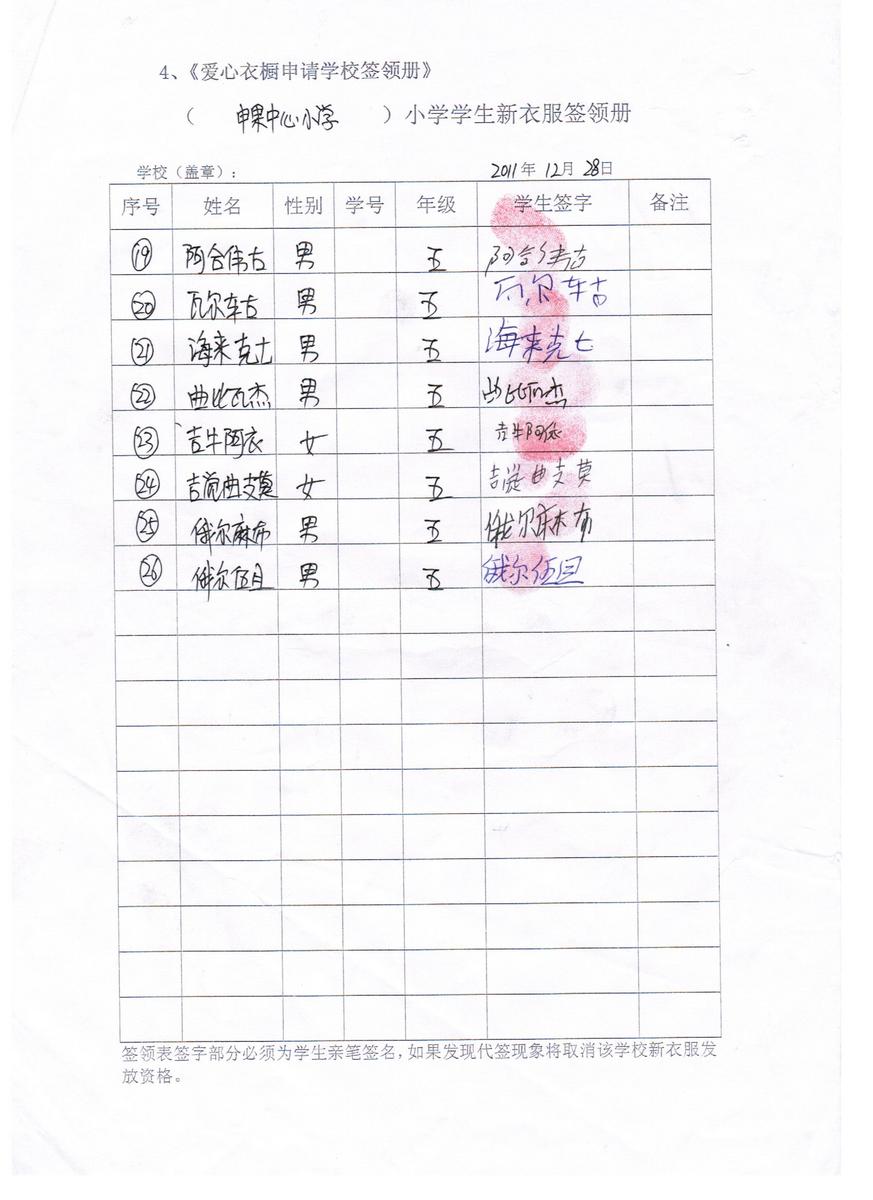 4、《爱心衣橱申请学校签领册》
（ 申果中心小学 ）小学学生新衣服签领册
学校（盖章）： 2011年 12月 28日
序号 姓名 性别 学号 年级 学生签字 备注
⑲ 阿合伟古 男 五 阿合伟古
⑳ 瓦尔车古 男 五 瓦尔车古
㉑ 海来克土 男 五 海来克七
㉒ 曲比瓦杰 男 五 曲比瓦杰
㉓ 吉牛阿衣 女 五 吉牛阿依
㉔ 吉觉曲支莫 女 五 吉觉曲支莫
㉕ 俄尔麻布 男 五 俄尔麻布
㉖ 俄尔伍且 男 五 俄尔伍且
签领表签字部分必须为学生亲笔签名，如果发现代签现象将取消该学校新衣服发
放资格。